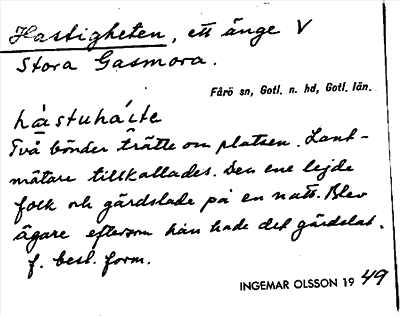 Hastigheten, ett änge V
Stora Gasmora.
Fårö sn, Gotl. n. hd, Gotl. län.
hástuháite
Två bönder trätte om platsen. Lant-
mätare tillskallades. Den ene lejde
folk och gärdslade på en natt. Blev
ägare eftersom han hade det gärdslat.
f. best. form.
INGEMAR OLSSON 19 49